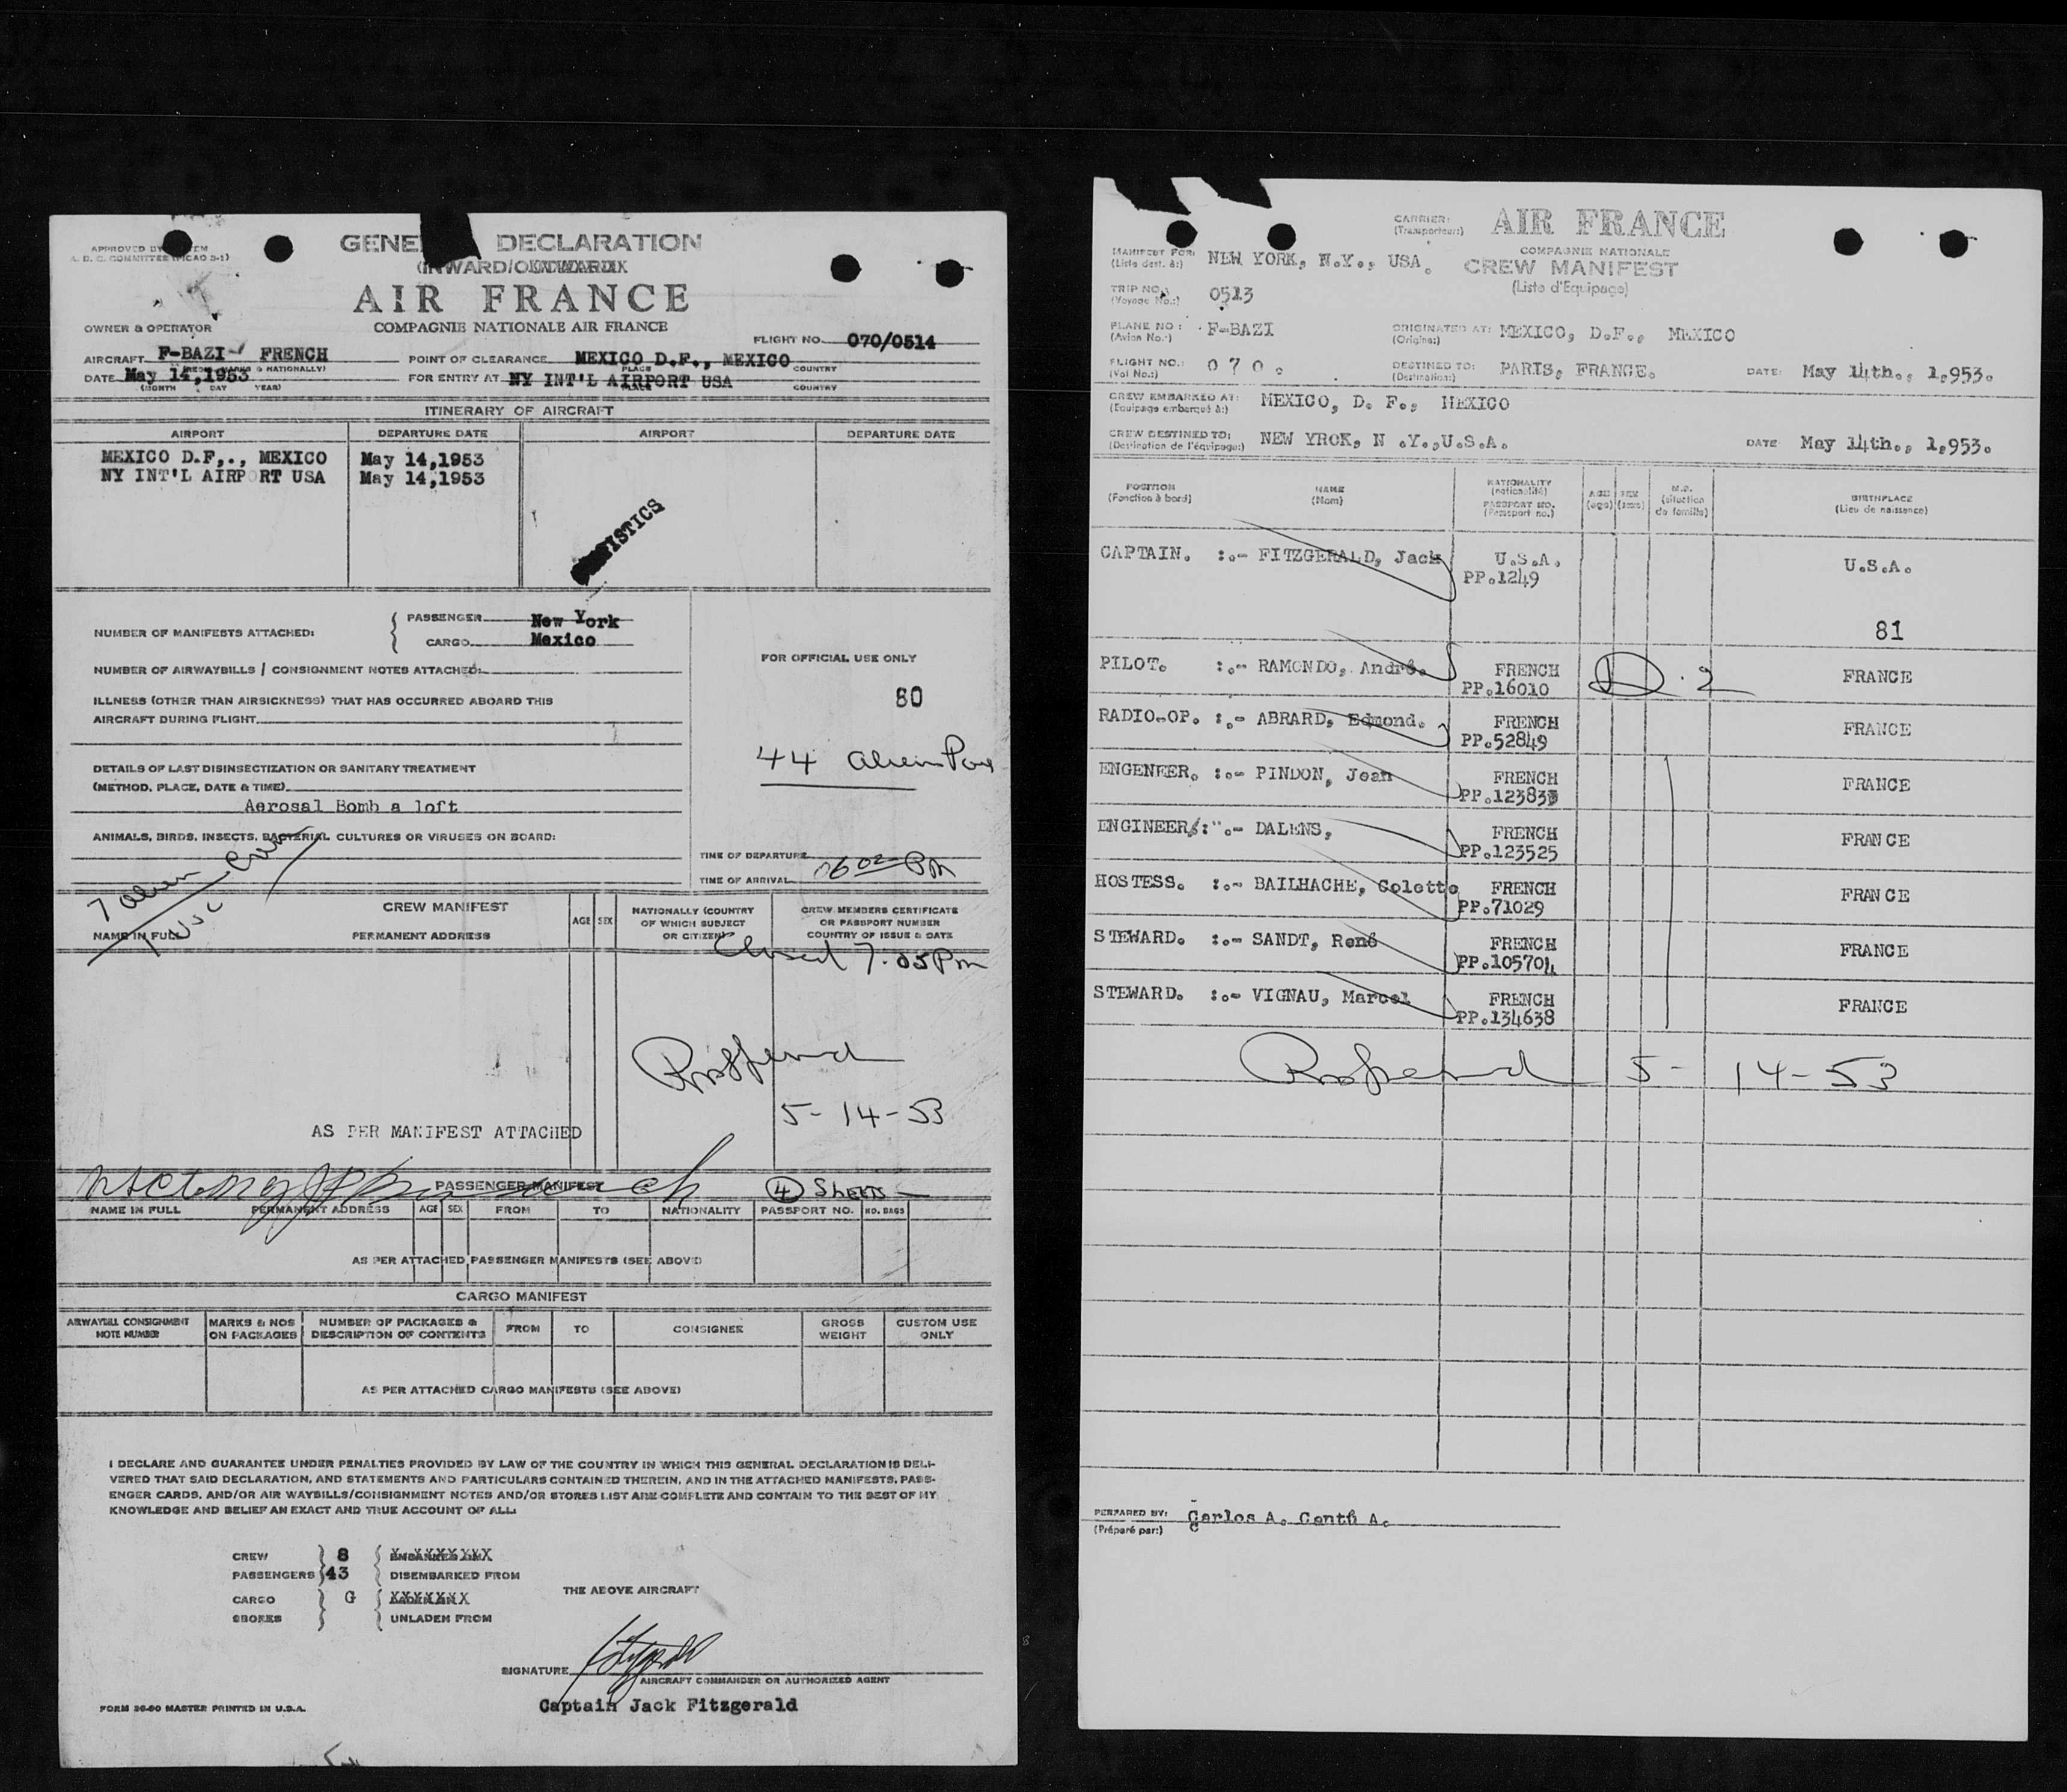 APPROVED BY
A. D. C. COMMITTEE (FICAO 3-1)
DECLARATION
(INWARD/
AIR FRANCE
OWNER & OPERATOR
COMPAGNIE NATIONALE AIR FRANCE
FLIGHT NO. 070/0514
AIRCRAFT F-BAZI - FRENCH
POINT OF CLEARANCE MEXICO D.F., MEXICO
PLACE COUNTRY
DATE May 14,1953
(MONTH DAY YEAR)
FOR ENTRY AT NY INT'L AIRPORT USA
PLACE COUNTRY
ITINERARY OF AIRCRAFT
AIRPORT DEPARTURE DATE AIRPORT DEPARTURE DATE
MEXICO D.F,., MEXICO May 14,1953
NY INT'L AIRPORT USA May 14,1953
NUMBER OF MANIFESTS ATTACHED:
PASSENGER New York
CARGO Mexico
NUMBER OF AIRWAYBILLS / CONSIGNMENT NOTES ATTACHED:
FOR OFFICIAL USE ONLY
80
ILLNESS (OTHER THAN AIRSICKNESS) THAT HAS OCCURRED ABOARD THIS
AIRCRAFT DURING FLIGHT
44 Alien Pax
DETAILS OF LAST DISINSECTIZATION OR SANITARY TREATMENT
(METHOD, PLACE, DATE & TIME)
Aerosal Bomb a loft
ANIMALS, BIRDS, INSECTS, BACTERIAL CULTURES OR VIRUSES ON BOARD:
TIME OF DEPARTURE
TIME OF ARRIVAL 06 02 PM
7 Alien Crew
1 USC
CREW MANIFEST
NAME IN FULL PERMANENT ADDRESS
AGE SEX
NATIONALLY (COUNTRY
OF WHICH SUBJECT
OR CITIZEN)
CREW MEMBERS CERTIFICATE
OR PASSPORT NUMBER
COUNTRY OF ISSUE & DATE
Closed 7:05 Pm
5-14-53
AS PER MANIFEST ATTACHED
PASSENGER MANIFEST
4 Sheets
NAME IN FULL PERMANENT ADDRESS AGE SEX FROM TO NATIONALITY PASSPORT NO. NO. BAGS
AS PER ATTACHED PASSENGER MANIFESTS (SEE ABOVE)
CARGO MANIFEST
AIRWAYBILL CONSIGNMENT
NOTE NUMBER
MARKS & NOS
ON PACKAGES
NUMBER OF PACKAGES &
DESCRIPTION OF CONTENTS
FROM TO CONSIGNEE
GROSS
WEIGHT
CUSTOM USE
ONLY
AS PER ATTACHED CARGO MANIFESTS (SEE ABOVE)
I DECLARE AND GUARANTEE UNDER PENALTIES PROVIDED BY LAW OF THE COUNTRY IN WHICH THIS GENERAL DECLARATION IS DELI-
VERED THAT SAID DECLARATION, AND STATEMENTS AND PARTICULARS CONTAINED THEREIN, AND IN THE ATTACHED MANIFESTS, PASS-
ENGER CARDS, AND/OR AIR WAYBILLS/CONSIGNMENT NOTES AND/OR STORES LIST ARE COMPLETE AND CONTAIN TO THE BEST OF MY
KNOWLEDGE AND BELIEF AN EXACT AND TRUE ACCOUNT OF ALL:
CREW 8
PASSENGERS 43 DISEMBARKED FROM
CARGO G
THE ABOVE AIRCRAFT
UNLADEN FROM
SIGNATURE
AIRCRAFT COMMANDER OR AUTHORIZED AGENT
Captain Jack Fitzgerald
FORM 36-60 MASTER PRINTED IN U.S.A.
CARRIER:
(Transporteur:)
AIR FRANCE
COMPAGNIE NATIONALE
CREW MANIFEST
(Liste d'Equipage)
MANIFEST FOR:
(Liste dest. à:)
NEW YORK, N.Y., USA.
TRIP NO.:
(Voyage No.:)
0513
PLANE NO:
(Avion No.:)
F-BAZI
ORIGINATED AT:
(Origine:)
MEXICO, D.F., MEXICO
FLIGHT NO.:
(Vol No.:)
070.
DESTINED TO:
(Destination:)
PARIS, FRANCE.
DATE: May 14th., 1,953.
CREW EMBARKED AT:
(Equipage embarqué à:)
MEXICO, D. F., MEXICO
CREW DESTINED TO:
(Destination de l'équipage:)
NEW YROK, N .Y.,U.S.A.
DATE: May 14th., 1,953.
POSITION
(Fonction à bord)
NAME
(Nom)
NATIONALITY
(nationalité)
PASSPORT NO.
(Passeport no.)
AGE
(age)
SEX
(sexe)
M.S.
(situation
de famille)
BIRTHPLACE
(Lieu de naissance)
CAPTAIN. :.- FITZGERALD, Jack U.S.A. U.S.A.
PP.1249
81
PILOT. :.- RAMONDO, André. FRENCH FRANCE
PP.16010
RADIO-OP. :.- ABRARD, Edmond. FRENCH FRANCE
PP.52849
ENGENEER. :.- PINDON, Jean FRENCH FRANCE
ENGINEER :.- DALENS, FRENCH FRANCE
PP.123525
HOSTESS. :.- BAILHACHE, Colette FRENCH FRANCE
PP.71029
STEWARD. :.- SANDT, René FRENCH FRANCE
PP.105704
STEWARD. :.- VIGNAU, Marcel FRENCH FRANCE
PP.134638
5-14-53
PERPARED BY:
(Préparé par:)
Carlos A. Cantú A.